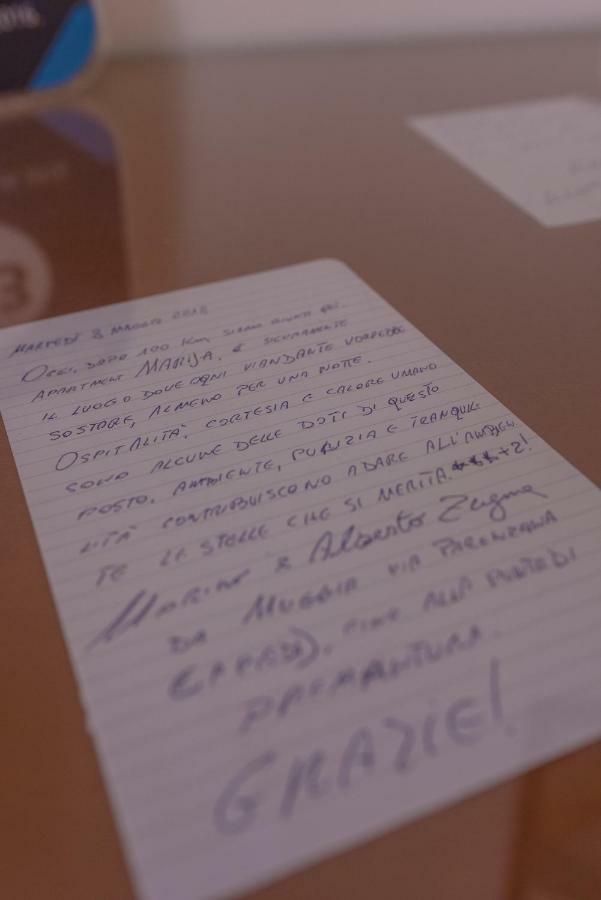 2018.
3
MARTEDÌ 8 MAGGIO 2018
OGGI, DOPO 100 KM, SIAMO GIUNTI QUI.
APARTMENT MARIJA, È SICURAMENTE
IL LUOGO DOVE OGNI VIANDANTE VORREBBE
SOSTARE, ALMENO PER UNA NOTTE.
OSPITALITÀ, CORTESIA E CALORE UMANO
SONO ALCUNE DELLE DOTI DI QUESTO
POSTO. AMBIENTE, PULIZIA E TRANQUIL-
LITÀ CONTRIBUISCONO A DARE ALL'AMBIEN-
TE LE STELLE CHE SI MERITA. ***+2!
MARINO & Alberto
DA MUGGIA VIA PARENZANA
(A PIEDI), FINO ALLA PUNTA DI
PREMANTURA.
GRAZIE!